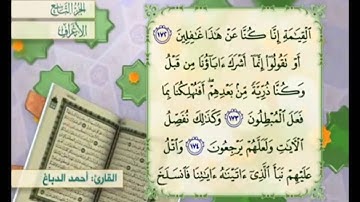 الجزء التاسع
الأعراف
ٱلْقِيَـٰمَةِ إِنَّا كُنَّا عَنْ هَـٰذَا غَـٰفِلِينَ ١٧٢
أَوْ تَقُولُوٓا۟ إِنَّمَآ أَشْرَكَ ءَابَآؤُنَا مِن قَبْلُ
وَكُنَّا ذُرِّيَّةً مِّنۢ بَعْدِهِمْ أَفَتُهْلِكُنَا بِمَا
فَعَلَ ٱلْمُبْطِلُونَ ١٧٣ وَكَذَٰلِكَ نُفَصِّلُ
ٱلْـَٔايَـٰتِ وَلَعَلَّهُمْ يَرْجِعُونَ ١٧٤ وَٱتْلُ
عَلَيْهِمْ نَبَأَ ٱلَّذِىٓ ءَاتَيْنَـٰهُ ءَايَـٰتِنَا فَٱنسَلَخَ
القارئ: أحمد الدباغ